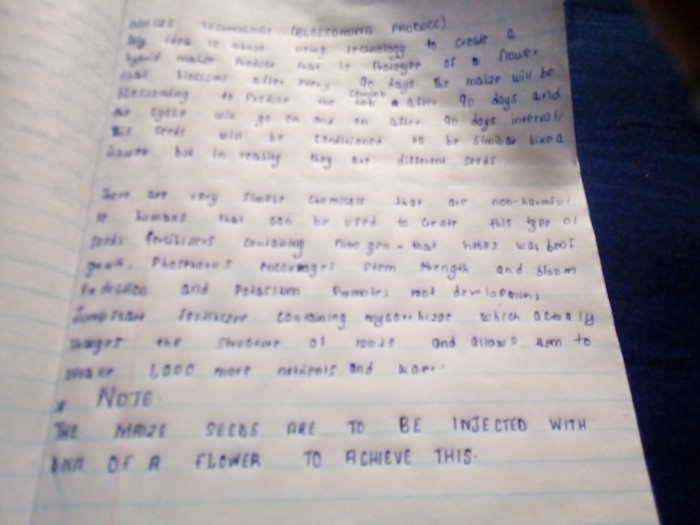 MAIZE TECHNOLOGY (BLOSSOMING PRODUCE)
My idea is about using technology to create a
hybrid maize produce that is prototype of a flower
that blossoms after every 90 days. The maize will be
blossoming to produce the cob after 90 days and
the cycle will go on and on after 90 days interval.
The seeds will be conditioned to be similar like a
flower but in reality they are different seeds
There are very simple chemicals that are non-harmful
to humans that can be used to create this type of
seeds fertilizers containing - that helps leaf
Phosphorus encourages stem strength and bloom
production and Potassium promotes root development
Jumpstart fertilizer containing mycorrhizae which actually
changes the structure of roots and allows them to
1,000 more nutrients and water.
* NOTE
THE MAIZE SEEDS ARE TO BE INJECTED WITH
DNA OF A FLOWER TO ACHIEVE THIS.